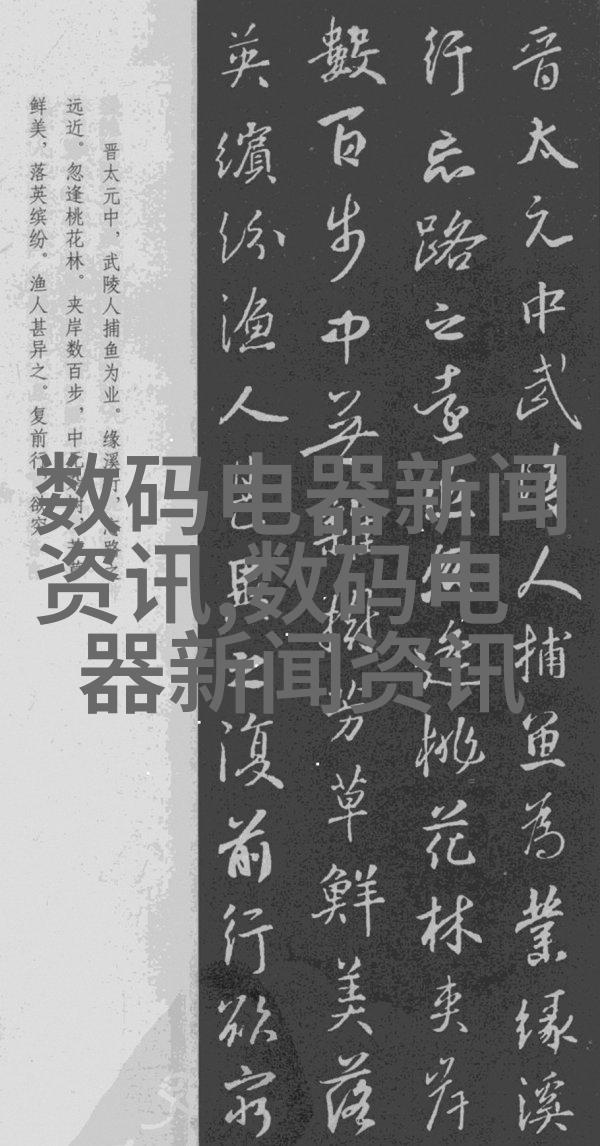 晋太元中武陵人捕鱼为業缘溪
行忘路之遠近忽逢桃花林夹岸
數百步中无雜樹芳草鮮美落
英繽纷渔人甚異之復前行欲穷
晋太元中，武陵人捕鱼为业。缘溪行，忘路之
远近。忽逢桃花林。夹岸数百步，中无杂树，芳草
鲜美，落英缤纷。渔人甚异之。复前行，欲穷
数码电器新闻
资讯,数码电
器新闻资讯